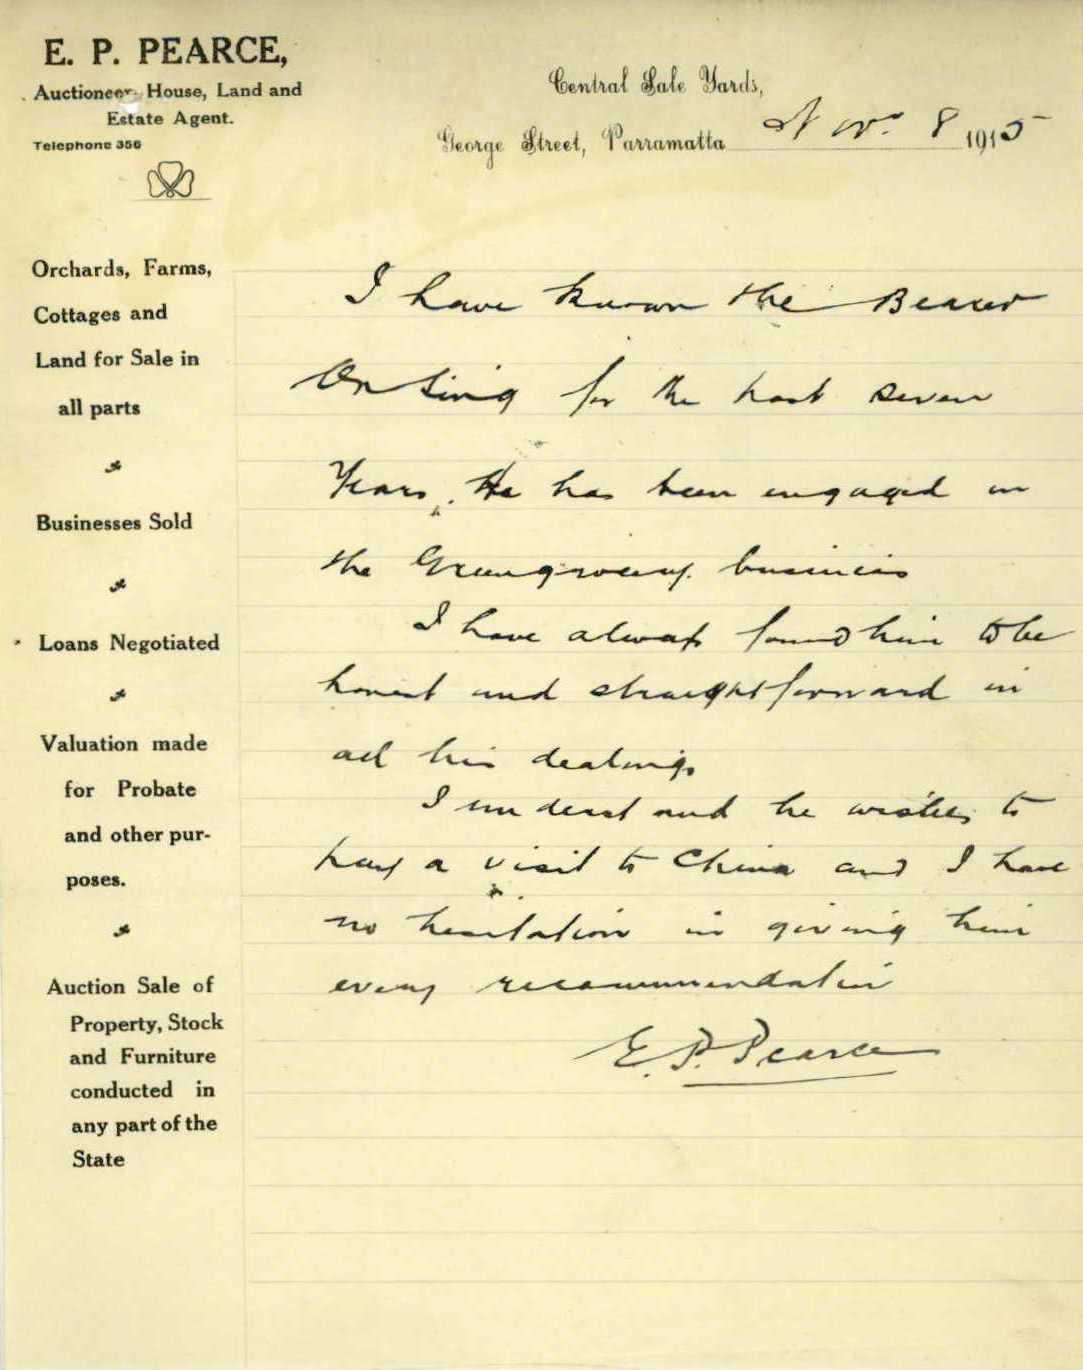 E. P. PEARCE,
Auctioneer, House, Land and
Estate Agent.
Telephone 356
Central Sale Yards,
George Street, Parramatta Nov. 8 1915
Orchards, Farms,
Cottages and
Land for Sale in
all parts
Businesses Sold
Loans Negotiated
Valuation made
for Probate
and other pur-
poses.
Auction Sale of
Property, Stock
and Furniture
conducted in
any part of the
State
I have known the Bearer
On Sing for the past seven
Years. He has been engaged in
the Greengrocery business
I have always found him to be
honest and straightforward in
all his dealings
I understand he wishes to
pay a visit to China and I have
no hesitation in giving him
every recommendation
E. P. Pearce